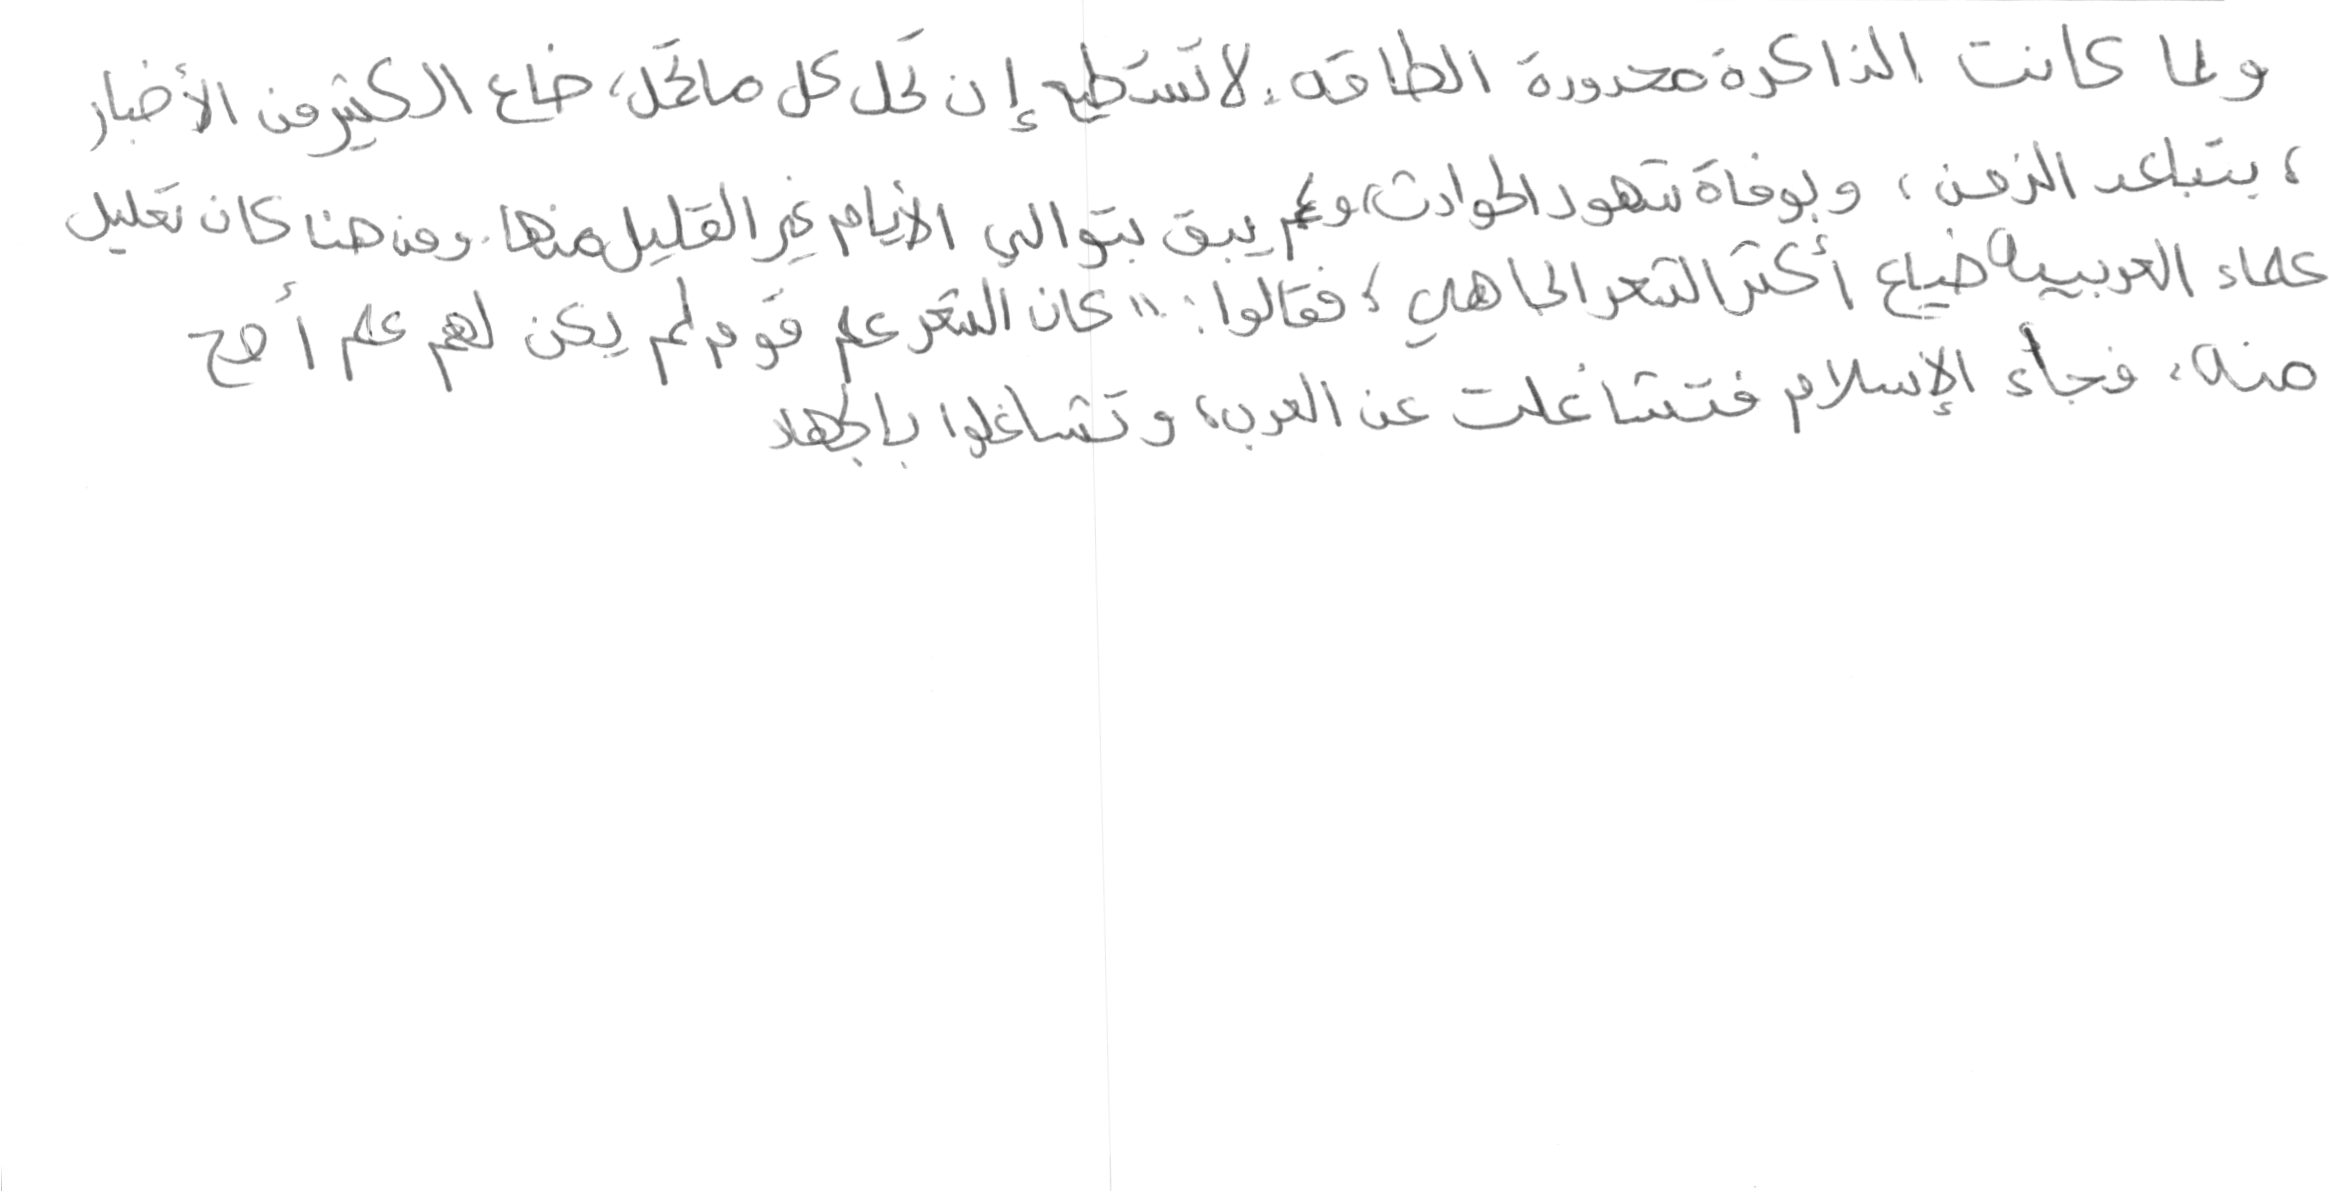 ولما كانت الذاكرة محدودة الطاقه، لا تستطيع إن تحل كل ما تحمل، ضاع الكثير من الأخبار
، بتباعد الزمن، وبوفاة شهود الحوادث، ولم يبق بتوالي الأيام غير القليل منها. ومن هنا كان تعليل
علماء العربية ضياع أكثر الشعر الجاهلي؛ فقالوا: "كان الشعر علم قوم لم يكن لهم علم أصح
منه، فجاء الإسلام فتشاغلت عن العرب، وتشاغلوا بالجهد